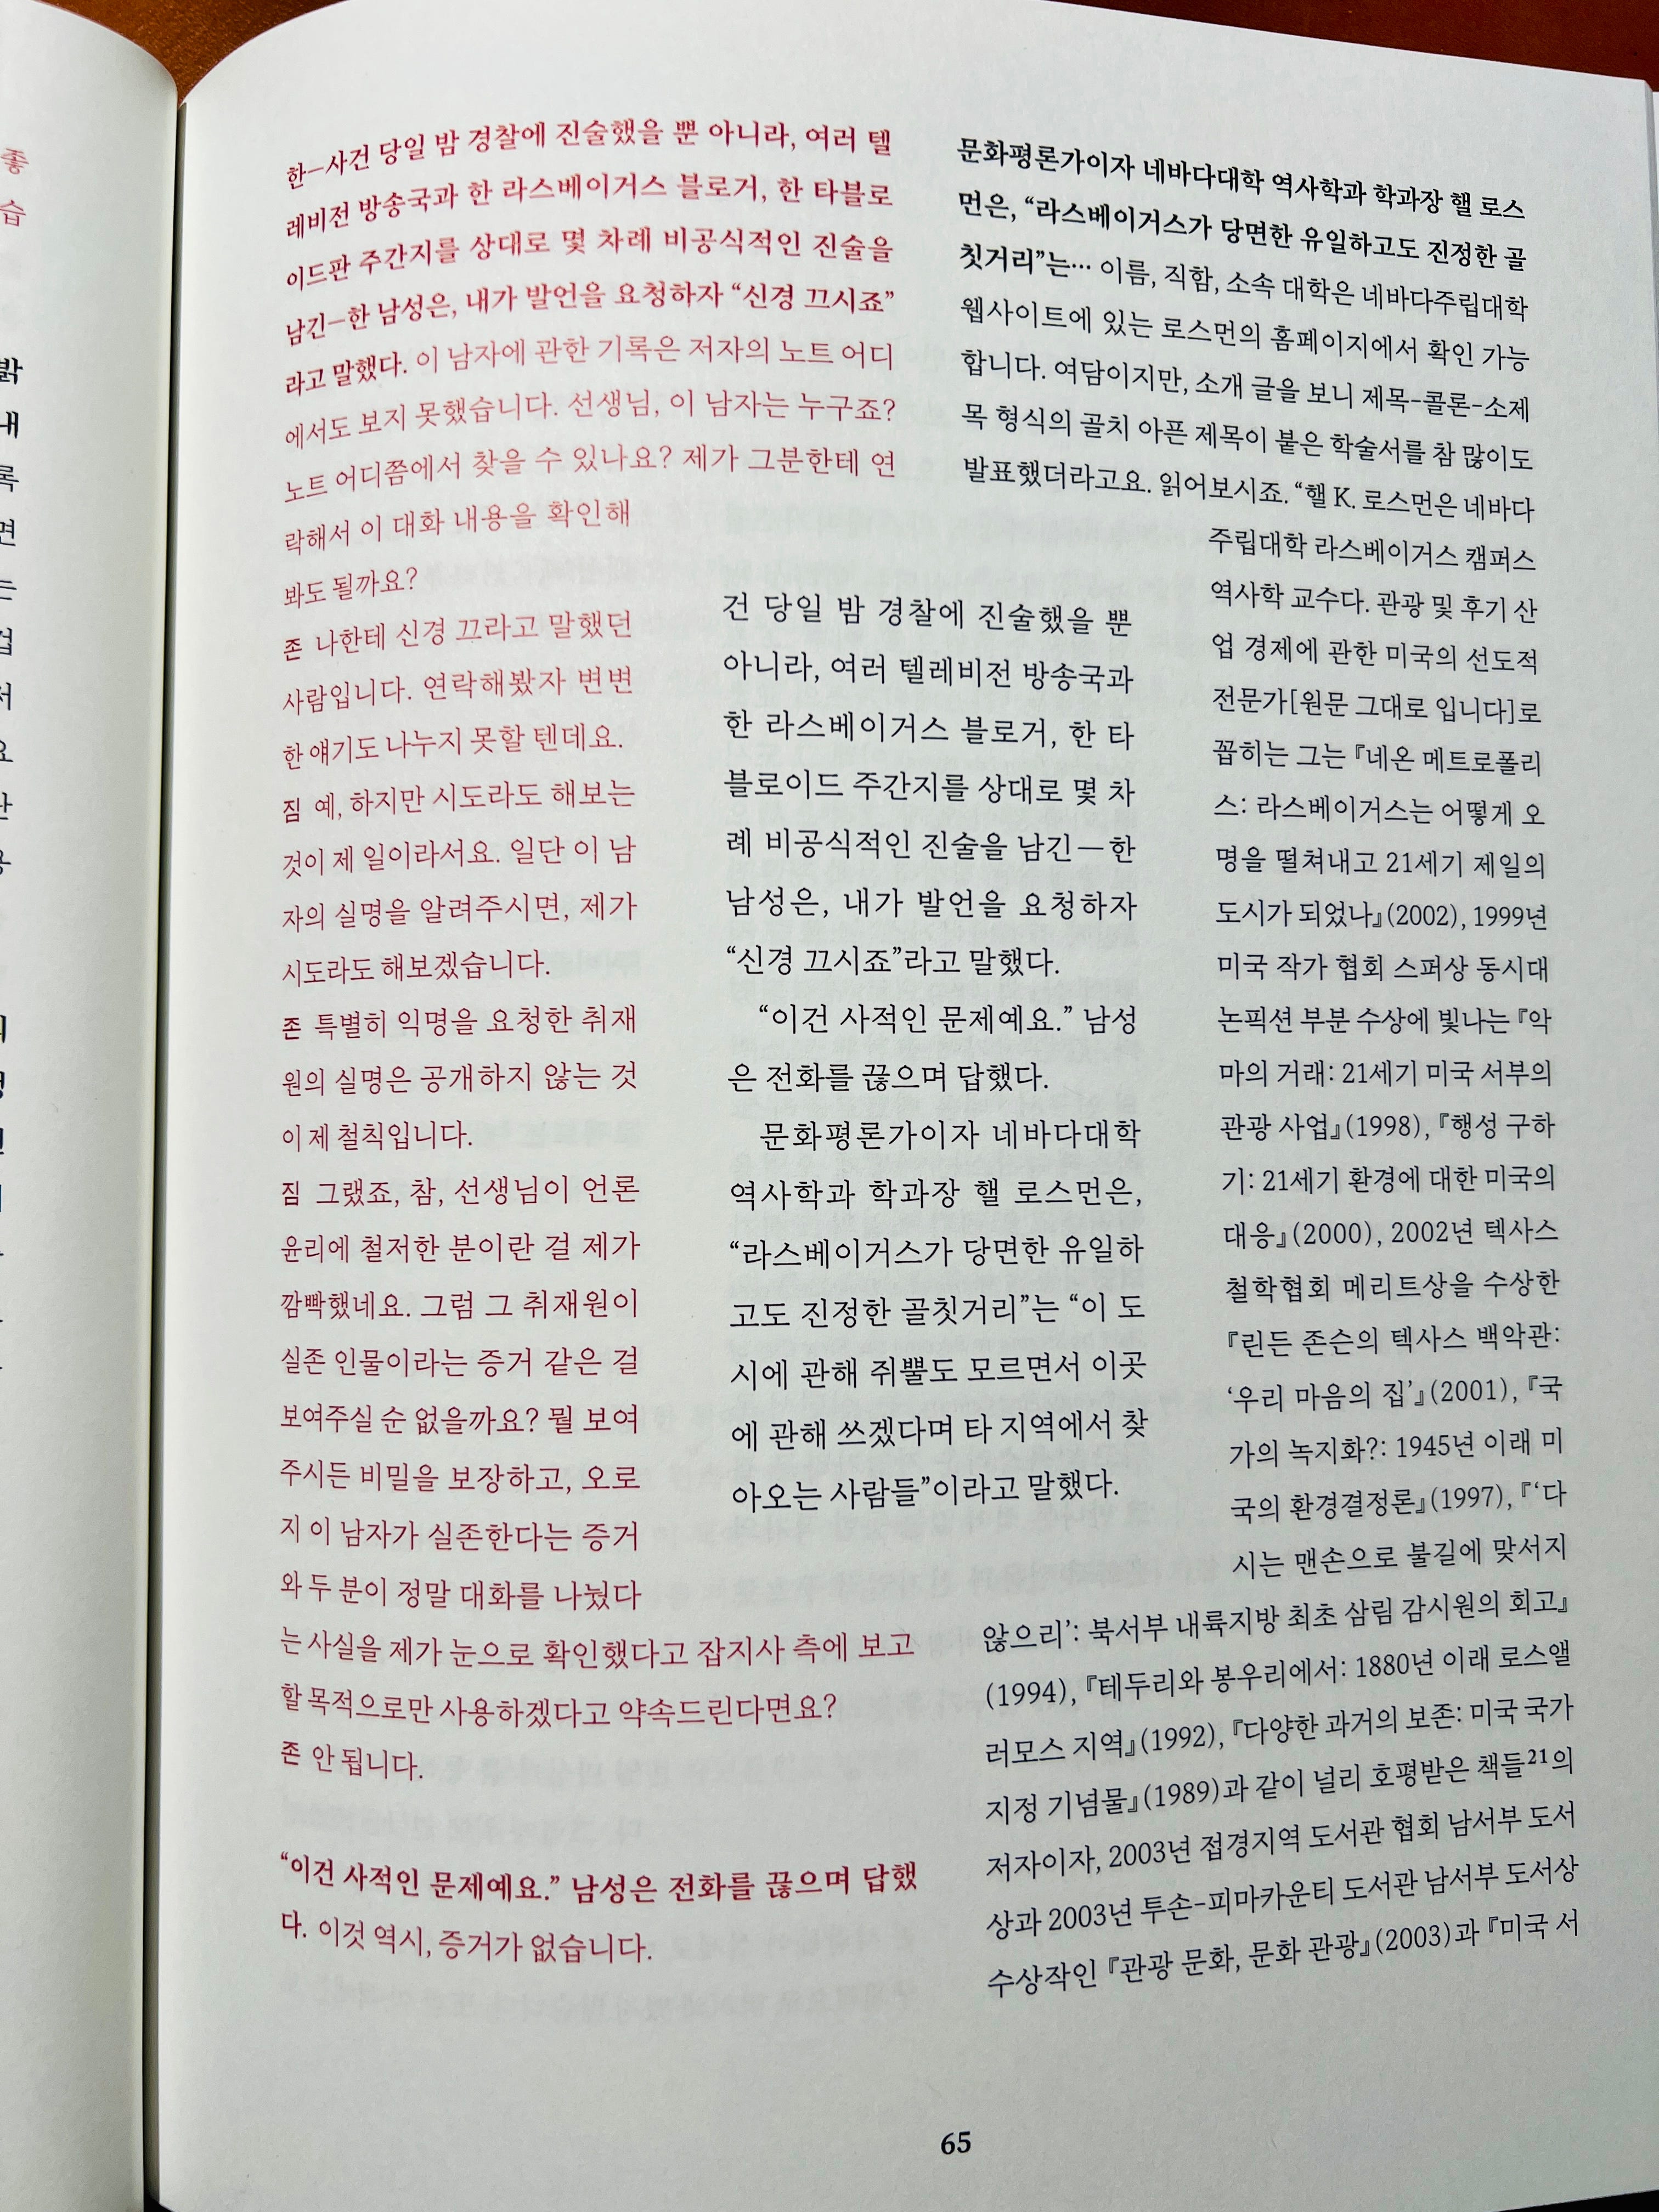 한—사건 당일 밤 경찰에 진술했을 뿐 아니라, 여러 텔
레비전 방송국과 한 라스베이거스 블로거, 한 타블로
이드판 주간지를 상대로 몇 차례 비공식적인 진술을
남긴—한 남성은, 내가 발언을 요청하자 “신경 끄시죠”
라고 말했다. 이 남자에 관한 기록은 저자의 노트 어디
에서도 보지 못했습니다. 선생님, 이 남자는 누구죠?
노트 어디쯤에서 찾을 수 있나요? 제가 그분한테 연
락해서 이 대화 내용을 확인해
봐도 될까요?
존 나한테 신경 끄라고 말했던
사람입니다. 연락해봤자 변변
한 얘기도 나누지 못할 텐데요.
짐 예, 하지만 시도라도 해보는
것이 제 일이라서요. 일단 이 남
자의 실명을 알려주시면, 제가
시도라도 해보겠습니다.
존 특별히 익명을 요청한 취재
원의 실명은 공개하지 않는 것
이 제 철칙입니다.
짐 그랬죠, 참, 선생님이 언론
윤리에 철저한 분이란 걸 제가
깜빡했네요. 그럼 그 취재원이
실존 인물이라는 증거 같은 걸
보여주실 순 없을까요? 뭘 보여
주시든 비밀을 보장하고, 오로
지 이 남자가 실존한다는 증거
와 두 분이 정말 대화를 나눴다
는 사실을 제가 눈으로 확인했다고 잡지사 측에 보고
할 목적으로만 사용하겠다고 약속드린다면요?
존 안 됩니다.
“이건 사적인 문제예요.” 남성은 전화를 끊으며 답했
다. 이것 역시, 증거가 없습니다.
건 당일 밤 경찰에 진술했을 뿐
아니라, 여러 텔레비전 방송국과
한 라스베이거스 블로거, 한 타
블로이드 주간지를 상대로 몇 차
례 비공식적인 진술을 남긴—한
남성은, 내가 발언을 요청하자
“신경 끄시죠”라고 말했다.
“이건 사적인 문제예요.” 남성
은 전화를 끊으며 답했다.
문화평론가이자 네바다대학
역사학과 학과장 핼 로스먼은,
“라스베이거스가 당면한 유일하
고도 진정한 골칫거리”는 “이 도
시에 관해 쥐뿔도 모르면서 이곳
에 관해 쓰겠다며 타 지역에서 찾
아오는 사람들”이라고 말했다.
문화평론가이자 네바다대학 역사학과 학과장 핼 로스
먼은, “라스베이거스가 당면한 유일하고도 진정한 골
칫거리”는… 이름, 직함, 소속 대학은 네바다주립대학
웹사이트에 있는 로스먼의 홈페이지에서 확인 가능
합니다. 여담이지만, 소개 글을 보니 제목-콜론-소제
목 형식의 골치 아픈 제목이 붙은 학술서를 참 많이도
발표했더라고요. 읽어보시죠. “핼 K. 로스먼은 네바다
주립대학 라스베이거스 캠퍼스
역사학 교수다. 관광 및 후기 산
업 경제에 관한 미국의 선도적
전문가[원문 그대로 입니다]로
꼽히는 그는 『네온 메트로폴리
스: 라스베이거스는 어떻게 오
명을 떨쳐내고 21세기 제일의
도시가 되었나』(2002), 1999년
미국 작가 협회 스퍼상 동시대
논픽션 부분 수상에 빛나는 『악
마의 거래: 21세기 미국 서부의
관광 사업』(1998), 『행성 구하
기: 21세기 환경에 대한 미국의
대응』(2000), 2002년 텍사스
철학협회 메리트상을 수상한
『린든 존슨의 텍사스 백악관:
‘우리 마음의 집’』(2001), 『국
가의 녹지화?: 1945년 이래 미
국의 환경결정론』(1997), 『‘다
시는 맨손으로 불길에 맞서지
않으리’: 북서부 내륙지방 최초 삼림 감시원의 회고』
(1994), 『테두리와 봉우리에서: 1880년 이래 로스앨
러모스 지역』(1992), 『다양한 과거의 보존: 미국 국가
지정 기념물』(1989)과 같이 널리 호평받은 책들21의
저자이자, 2003년 접경지역 도서관 협회 남서부 도서
상과 2003년 투손-피마카운티 도서관 남서부 도서상
수상작인 『관광 문화, 문화 관광』(2003)과 『미국 서
65